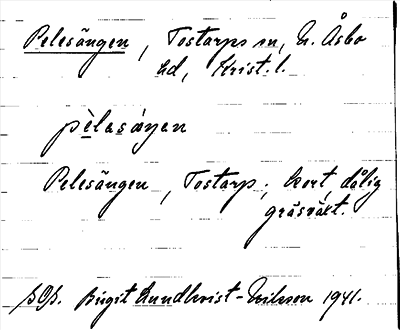 Pelesängen, Tostarps sn, N. Åsbo
hd, Krist. l.
pèlesáŋen
Pelesängen, Tostarp; kort, dålig
gräsväxt.
Birgit Lundkvist-Nilsson 1941.